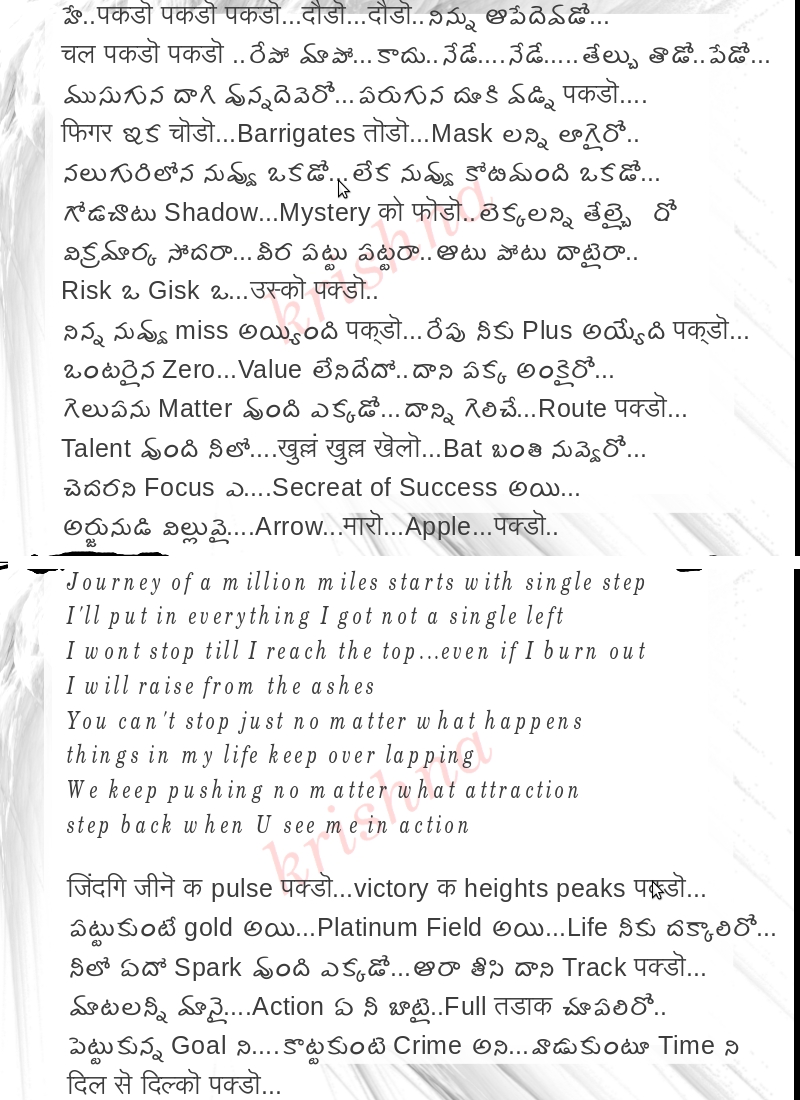 హే..पकडॊ पकडॊ पकडॊ...दौडॊ...दौडॊ..నిన్ను ఆపేదెవడో...
चल पकडॊ पकडॊ ..రేపో మాపో...కాదు..నేడే....నేడే.....తేల్చు తాడో..పేడో...
ముసుగున దాగి వున్నదెవెరో...పరుగున దూకి ఏడ్ని पकडॊ....
फिगर ఇక चॊडॊ...Barrigates तॊडॊ...Mask లన్ని లాగైరో..
నలుగురిలోన నువ్వు ఒకడో...లేక నువ్వు కోటిమంది ఒకడో...
గోడచాటు Shadow...Mystery को फॊडॊ..లెక్కలన్ని తేల్చై రో
విక్రమార్క సోదరా...వీర పట్టు పట్టరా..ఆటు పోటు దాటైరా..
Risk ఒ Gisk ఒ...उस्कॊ पक्डॊ..
నిన్న నువ్వు miss అయ్యింది पक्‌डॊ...రేపు నీకు Plus అయ్యేది पक्‌डॊ...
ఒంటరైన Zero...Value లేనిదేదో..దాని పక్క అంకైరో...
గెలుపను Matter వుంది ఎక్కడో...దాన్ని గెలిచే...Route पक्डॊ...
Talent వుంది నీలో....खुल्लं खुल्ल खॆलॊ...Bat బంతి నువ్వెరో...
చెదరని Focus ఎ....Secreat of Success అయి...
అర్జునుడి విల్లువై....Arrow...मारॊ...Apple...पक्डॊ..
Journey of a million miles starts with single step
I'll put in everything I got not a single left
I wont stop till I reach the top...even if I burn out
I will raise from the ashes
You can't stop just no matter what happens
things in my life keep over lapping
We keep pushing no matter what attraction
step back when U see me in action
जिंदगि जीनॆ क pulse पक्डॊ...victory क heights peaks पक्डॊ...
పట్టుకుంటే gold అయి...Platinum Field అయి...Life నీకు దక్కాలిరో...
నీలో ఏదో Spark వుంది ఎక్కడో...ఆరా తీసి దాని Track पक्डॊ...
మాటలన్నీ మానై....Action ఏ నీ బాటై..Full तडाक చూపలిరో..
పెట్టుకున్న Goal ని....కొట్టకుంటె Crime అని...వాడుకుంటూ Time ని
दिल सॆ दिल्कॊ पक्डॊ...
krishna
krishna